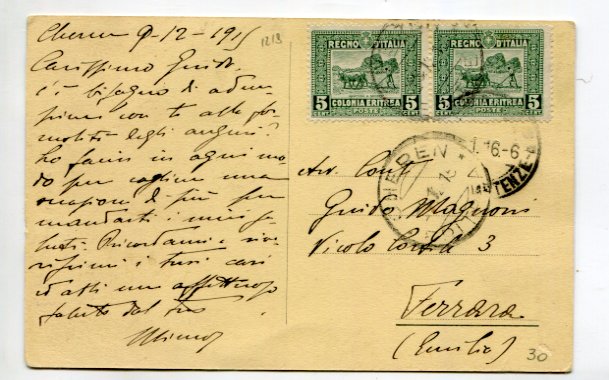 9-12-1915
1213
Carissimo Guido,
c'è bisogno di adem-
piere con te alla for-
malità degli auguri?
Lo faccio in ogni mo-
do per cogliere una
occasione di più per
mandarti i miei sa-
luti. Ricordami
i tuoi cari
un affettuoso
saluto dal tuo
REGNO D'ITALIA
5 COLONIA ERITREA 5
CENT. POSTE CENT.
REGNO D'ITALIA
5 COLONIA ERITREA 5
CENT. POSTE CENT.
1.16.-6
Avv. Conte
Guido Magnoni
Vicolo 3
Ferrara
(Emilia)
30